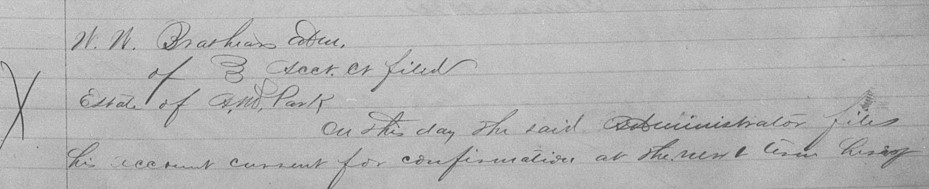 W. W. Brashears Adm.
of } Acct. Ct filed
Estate of A.M. Park
On this day the said Administrator files
his account current for confirmation at the next term hereof